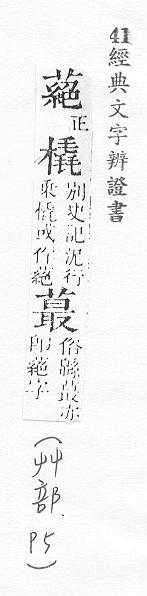 41經典文字辨證書
蕝正
橇別史記泥行乘橇或作蕝
蕞俗緜蕞亦即蕝字
(艸部. P5)